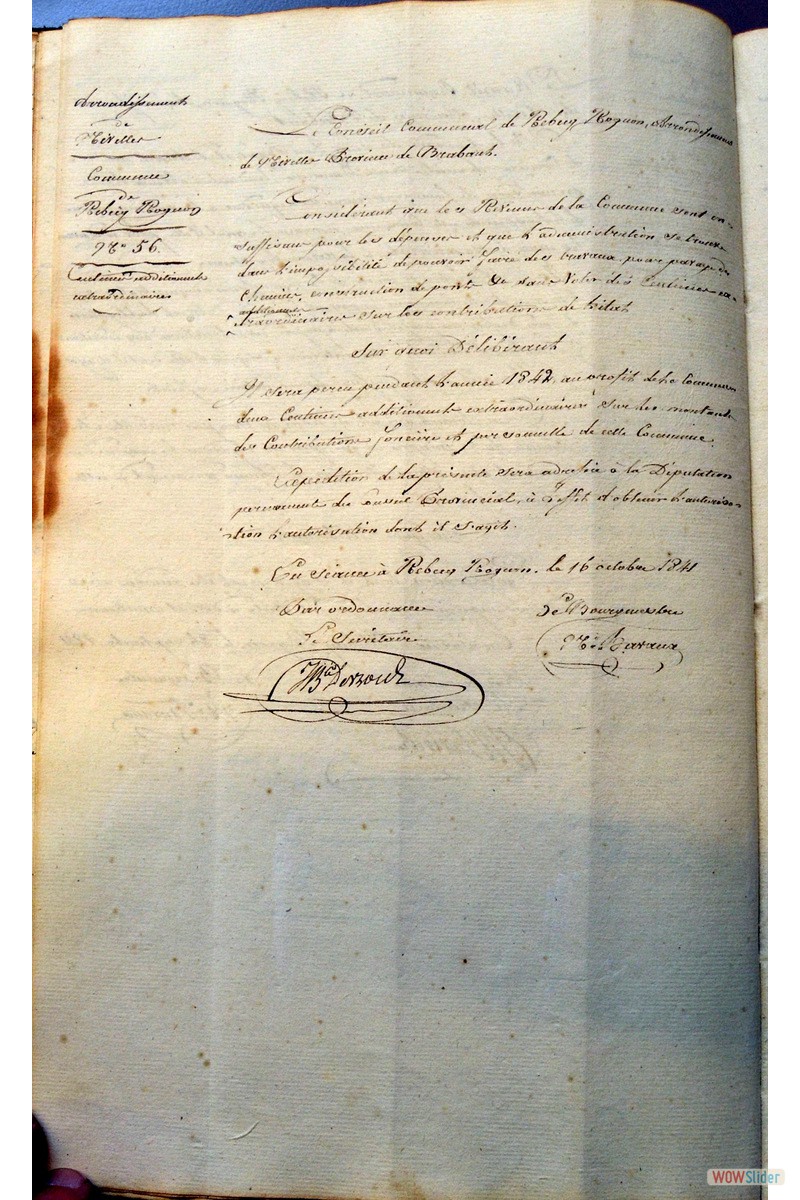 Arrondissement
de
Nivelles
Commune
de
Rebecq Rognon
N° 56.
Centimes additionnels
extraordinaires
Le Conseil Communal de Rebecq Rognon, Arrondissement
de Nivelles Province de Brabant.
Considérant que les Revenus de la Commune sont in-
suffisans pour les dépenses et que l'administration se trouve
dans l'impossibilité de pouvoir faire des travaux pour pavage de
Chemins, construction de ponts &c sans voter des Centimes ex-
additionnels
traordinaires sur les contributions de l'état
Sur quoi Délibérant
Il sera perçu pendant l'année 1842 au profit de la Commune
deux Centimes additionnels extraordinaires sur les montants
des Contributions foncière et personnelle de cette Commune.
Expédition de la présente sera adressée à la Députation
permanente du Conseil Provincial, à l'effet d'obtenir l'autorisa-
tion l'autorisation dont il s'agit.
En séance à Rebecq Rognon, le 16 octobre 1841
Par ordonnance
Le Bourgmestre
Le Secrétaire
WOWSlider